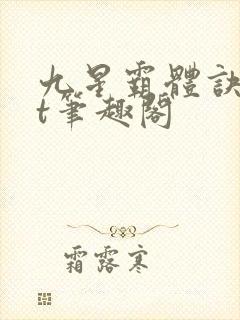 九星霸體訣
t筆趣閣
霜露寒